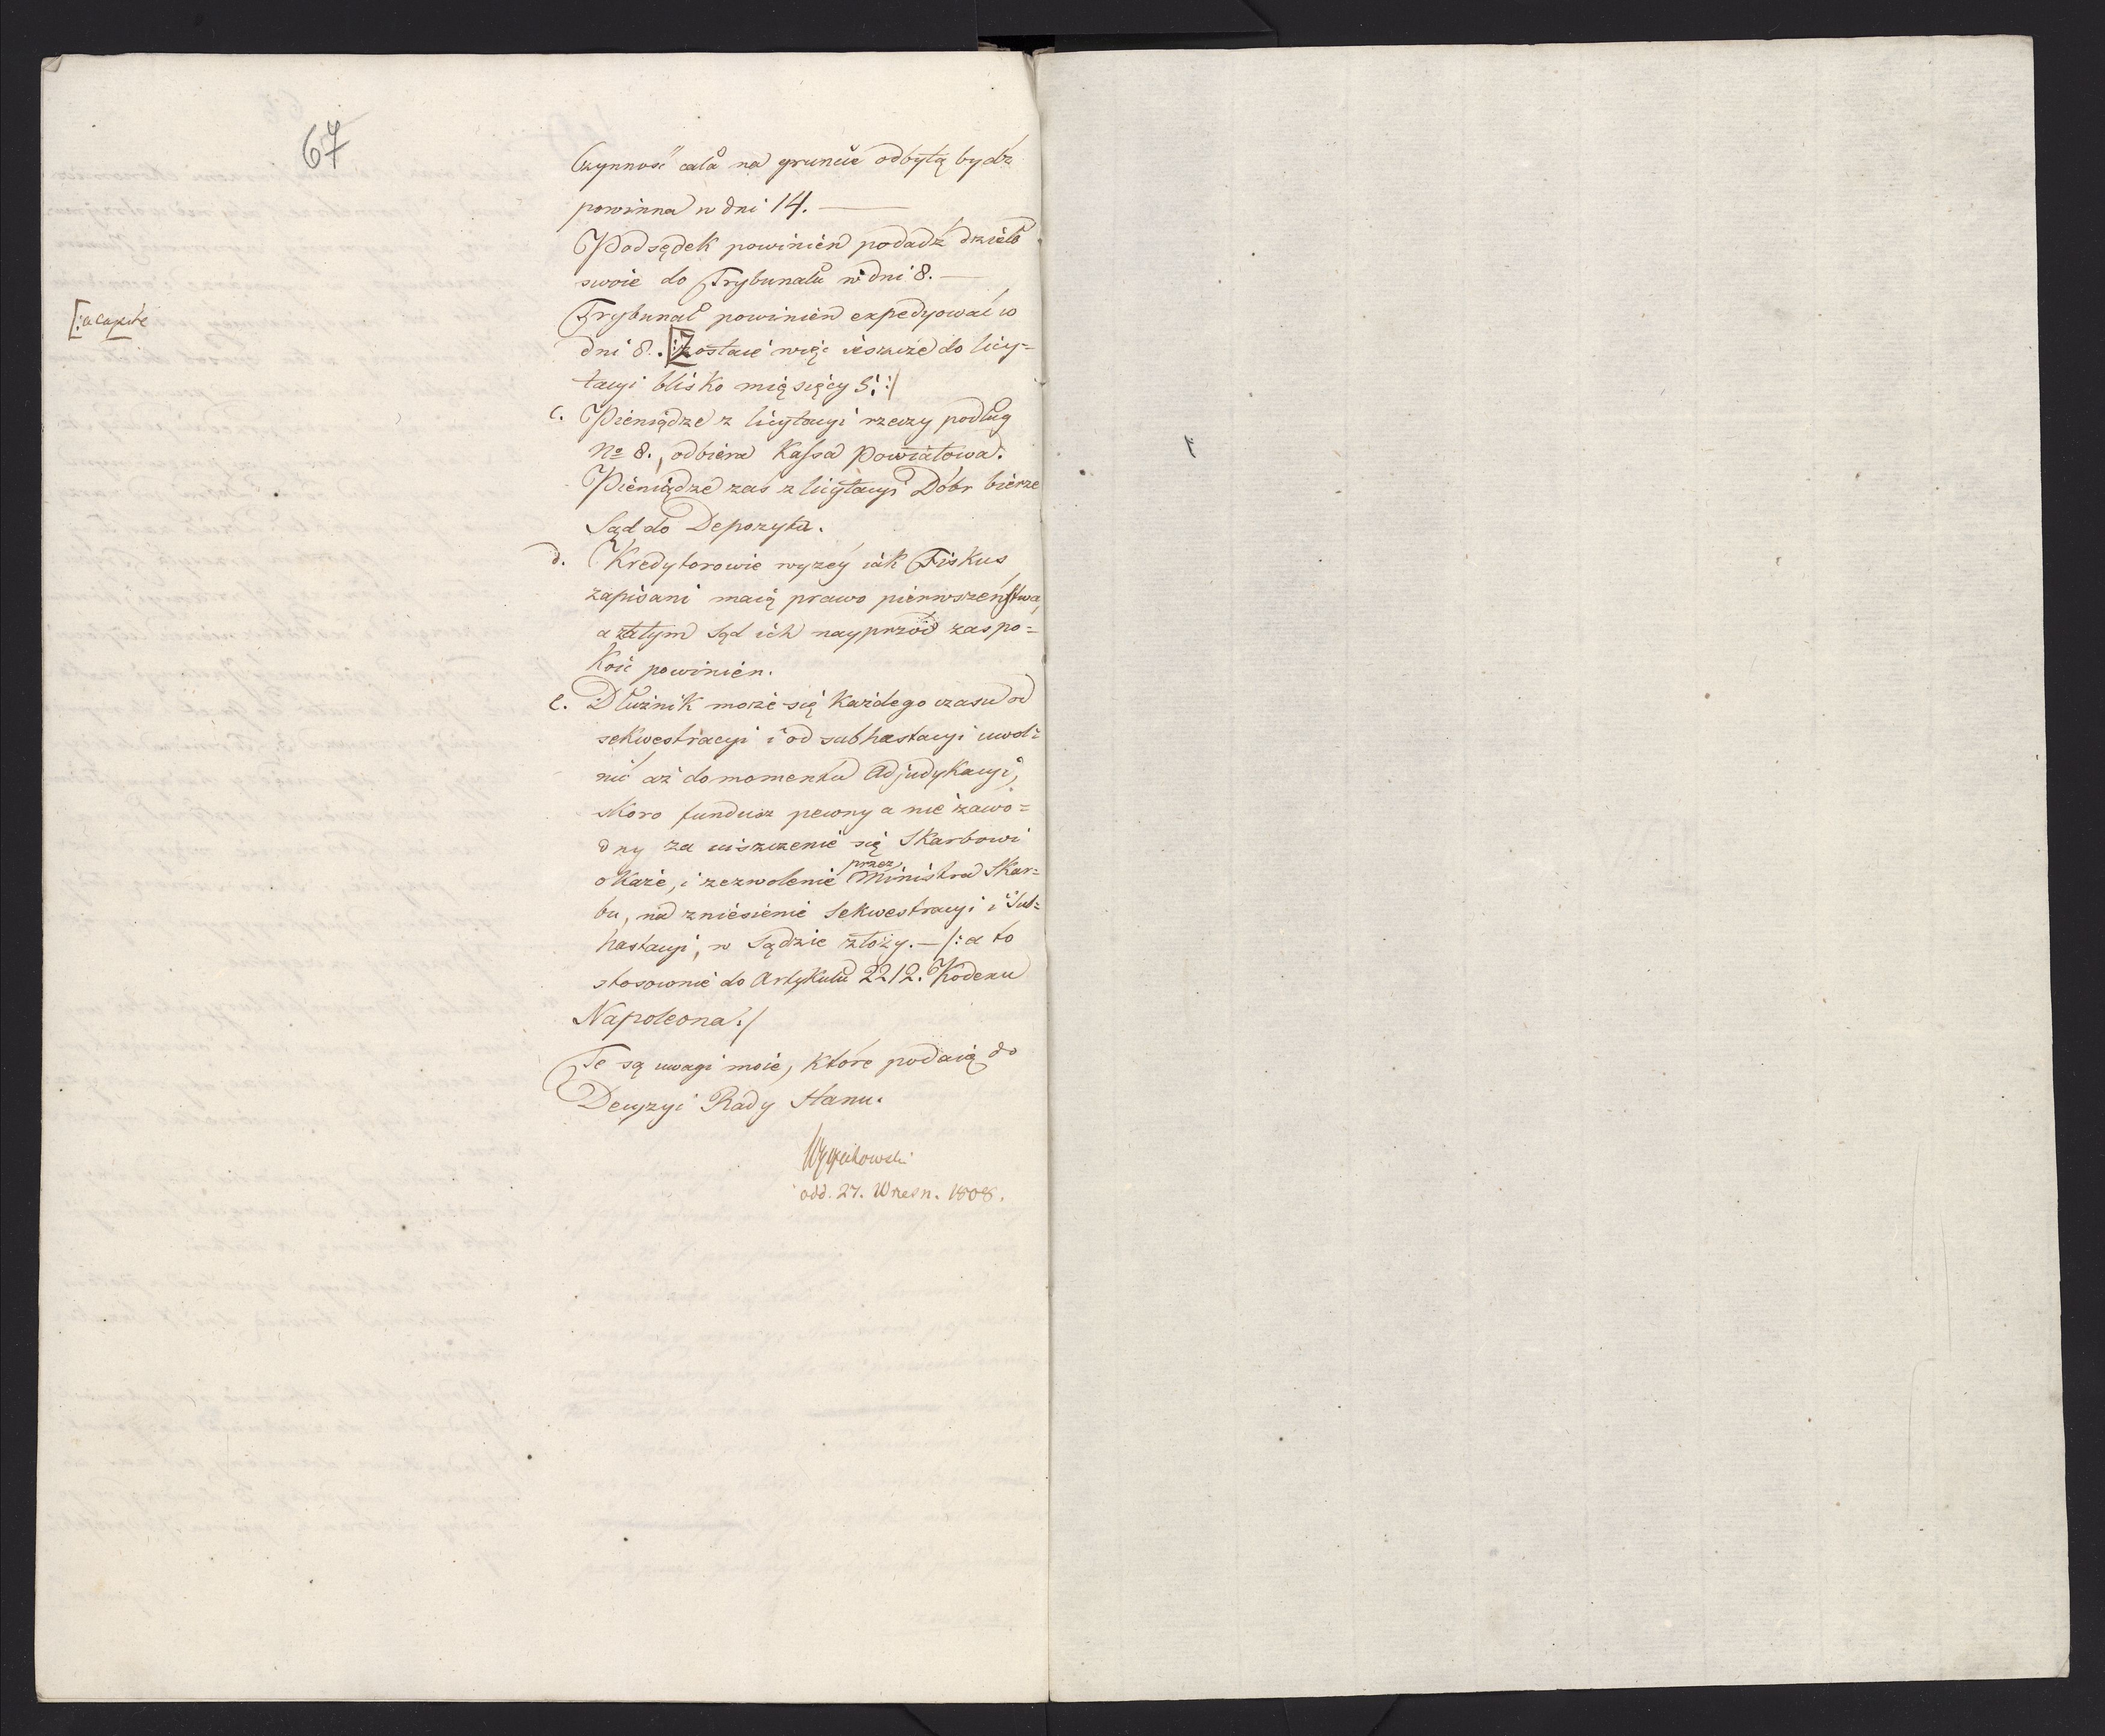 67
Czynność cała na gruncie odbytą bydź
powinna w dni 14. —
Podsędek powinien podadź dzieło
swoie do Trybunału w dni 8. —
[: a capite
Trybunał powinien expedyować w
dni 8. [: Zostaie więc ieszcze do licy=
tacyi blisko miesięcy 5. :/
c. Pieniądze z licytacyi rzeczy podług
No 8., odbiera Kassa Powiatowa.
Pieniądze zaś z licytacyi Dóbr bierze
Sąd do Depozytu.
d. Kredytorowie wyżey iak Fiskus
zapisani maią prawo pierwszeństwa,
a zatym Sąd ich nayprzód zaspo=
koić powinien.
e. Dłużnik może się każdego czasu od
sekwestracyi i od subhastacyi uwol=
nić aż do momentu Adjudykacyi,
skoro fundusz pewny a nie zawo=
dny za uiszczenie się Skarbowi
okaże, i zezwolenie przez Ministra Skar=
bu, na zniesienie Sekwestracyi i Sub=
hastacyi, w Sądzie złoży. — /: a to
stosownie do Artykułu 2212. Kodexu
Napoleona :/
Te są uwagi moie, które podaię do
Decyzyi Rady Stanu.
Węgleński
odd. 27. Wrześn. 1808.